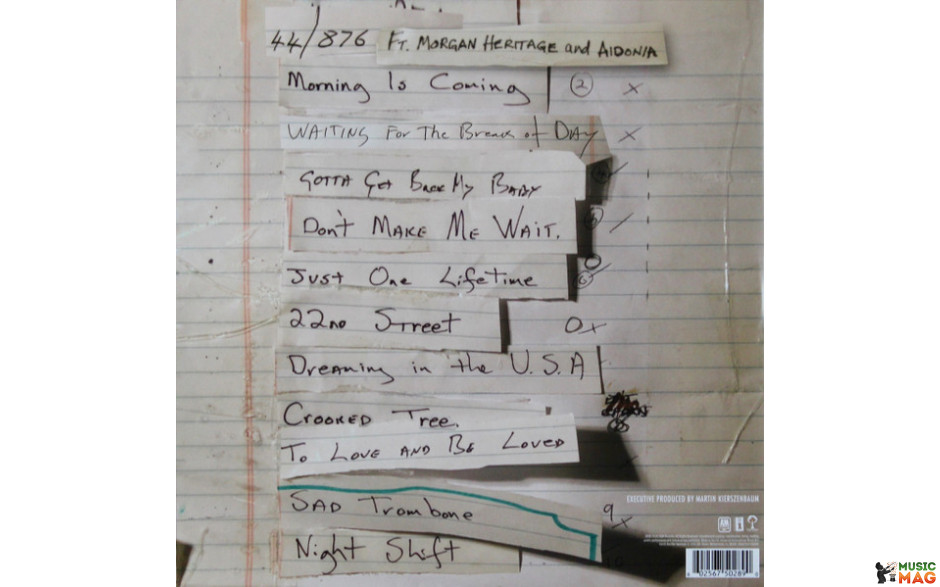 44/876 FT. MORGAN HERITAGE and AIDONIA
Morning Is Coming ② x
WAITING For The Break of DAY x
GOTTA Get Back My BABY
Don't MAKE ME WAIT.
Just One Lifetime ⑥
22ND Street 0x
Dreaming in the U.S.A
CROOKED Tree.
To Love AND BE Loved
EXECUTIVE PRODUCED BY MARTIN KIERSZENBAUM
SAD Trombone 9 x
Night Shift
MUSIC
MAG